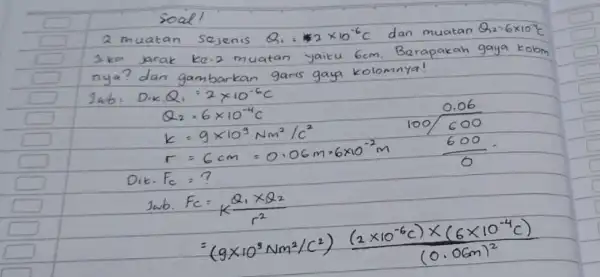 Soal!
2 muatan sejenis Q₁ = 2 × 10⁻⁶ C dan muatan Q₂ = 6 × 10⁻⁴ C
Jika jarak ke-2 muatan yaitu 6cm. Berapakah gaya kolom
nya? dan gambarkan garis gaya kolomnya!
Jwb: Dik. Q₁ = 2 × 10⁻⁶ C
Q₂ = 6 × 10⁻⁴ C
k = 9 × 10⁹ Nm² / C²
r = 6 cm = 0.06 m = 6×10⁻² m
0.06
100 / 600
600 -
0
Dit. Fc = ?
Jwb. Fc = K Q₁ × Q₂ / r²
= (9×10⁹ Nm²/C²) (2 × 10⁻⁶ C) × (6 × 10⁻⁴ C) / (0.06m)²